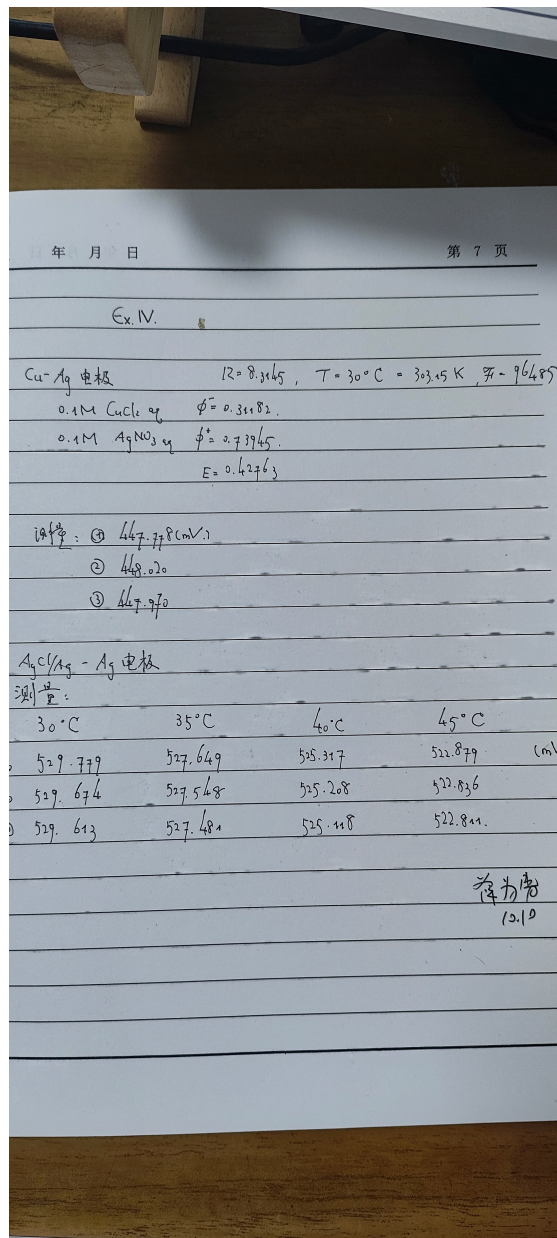 年 月 日 第 7 页
Ex. IV.
Cu-Ag 电极 R = 8.3145, T = 30°C = 303.15 K, F = 96485
0.1M CuCl₂ aq φ⁻ = 0.31182.
0.1M AgNO₃ aq φ⁺ = 0.73945.
E = 0.42763
测量: ① 447.778 (mV.)
② 448.020
③ 447.970
AgCl/Ag - Ag 电极
测量:
30°C 35°C 40°C 45°C
529.779 527.649 525.317 522.879 (mV
529.674 527.548 525.208 522.836
529.613 527.481 525.118 522.811.
10.10